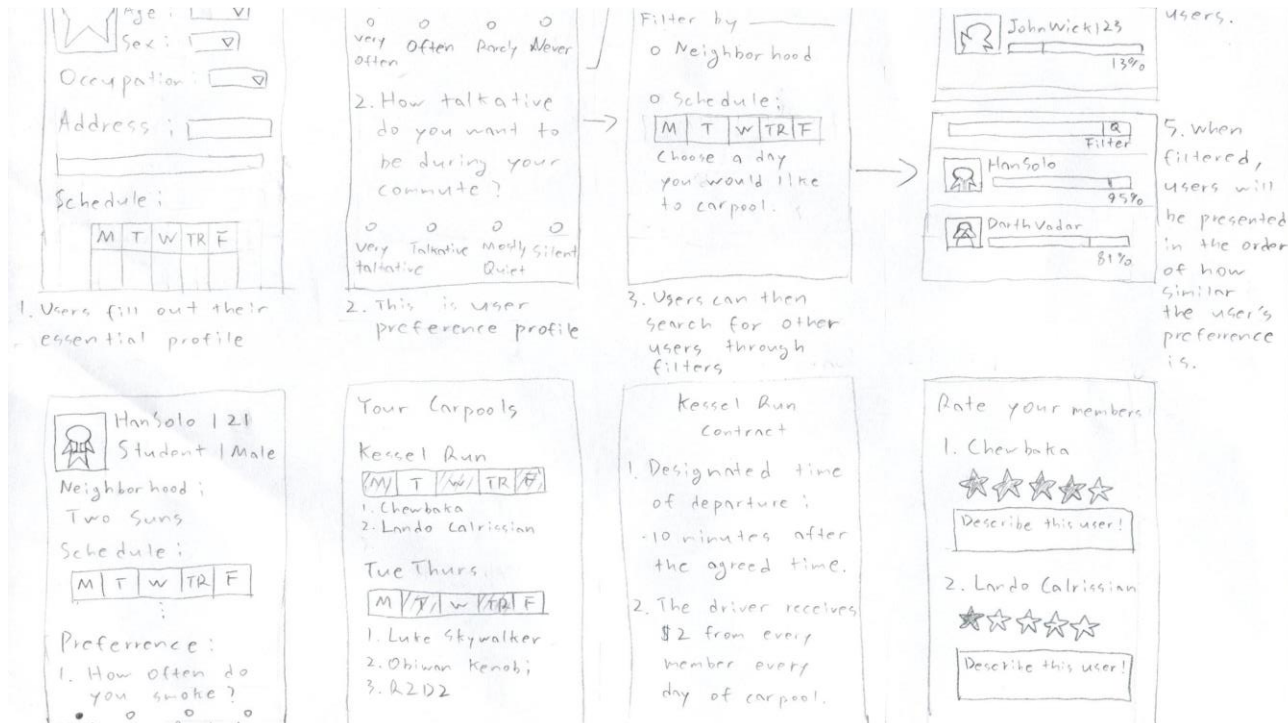 Age :
Sex :
Occupation :
Address :
Schedule :
M T W TR F
1. Users fill out their
essential profile
very often
Often
Rarely
Never
2. How talkative
do you want to
be during your
commute ?
very taltative
Talkative
Mostly Quiet
Silent
2. This is user
preference profile
Filter by
Neighborhood
Schedule :
M T W TR F
Choose a day
you would like
to carpool.
3. Users can then
search for other
users through
filters
JohnWick123
13%
users.
Q
Filter
HanSolo
95%
DarthVadar
81%
5. When
filtered,
users will
be presented
in the order
of how
similar
the user's
preference
is.
HanSolo | 21
Student | Male
Neighborhood :
Two Suns
Schedule :
M T W TR F
Preferrence :
1. How Often do
you smoke ?
Your Carpools
Kessel Run
M T W TR F
1. Chewbaka
2. Lando Calrissian
Tue Thurs
M T W TR F
1. Luke Skywalker
2. Obiwan Kenobi
3. R2D2
Kessel Run
Contract
1. Designated time
of departure :
-10 minutes after
the agreed time.
2. The driver receives
$2 from every
member every
day of carpool.
Rate your members
1. Chewbaka
Describe this user!
2. Lando Calrissian
Describe this user!